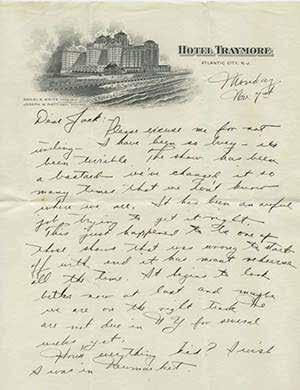 HOTEL TRAYMORE
ATLANTIC CITY, N.J.
DANIEL S. WHITE
JOSEPH W. MOTT
Monday
Nov. 7th
Dear Jack:
Please excuse me for not
writing - I have been so busy - its
been terrible. The show has been
a bastard - we've changed it so
many times that we don't know
where we are. It has been an awful
job trying to get it right.
This just happened to be one of
those shows that was wrong to start
off with and it has meant rehearse
all the time. It begins to look
better now at last and maybe
we are on the right track. We
are not due in N Y for several
weeks yet.
How's everything kid? I wish
I was in Newmarket